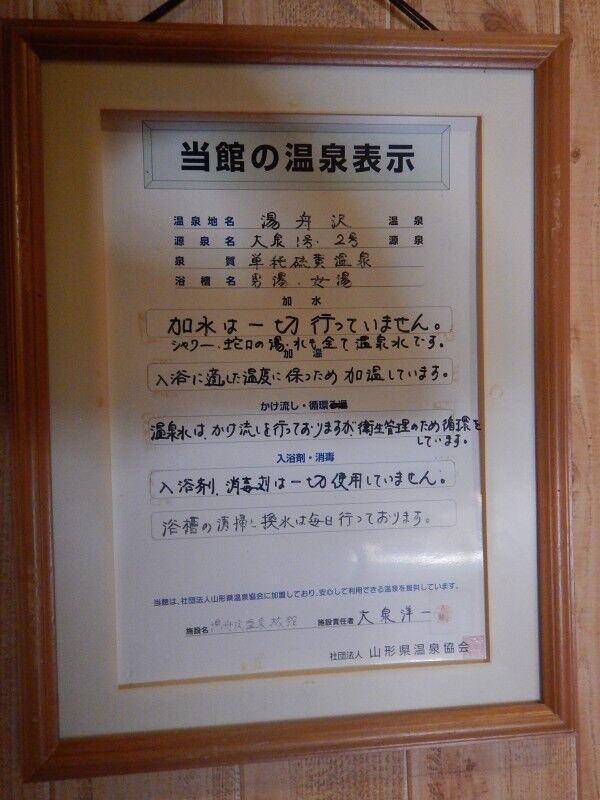 当館の温泉表示
温泉地名 湯舟沢 温泉
源泉名 大泉1号・2号 源泉
泉質 単純硫黄温泉
浴槽名 男湯・女湯
加水
加水は一切行っていません。
シャワー・蛇口の湯・水も全て温泉水です。
加温
入浴に適した温度に保つため加温しています。
かけ流し・循環
温泉水は、かけ流しを行っておりますが、衛生管理のため循環を
しています。
入浴剤・消毒
入浴剤、消毒剤は一切使用していません。
浴槽の清掃と換水は毎日行っております。
当館は、社団法人山形県温泉協会に加盟しており、安心して利用できる温泉を提供しています。
施設名 湯舟沢温泉旅館 施設責任者 大泉洋一
社団法人 山形県温泉協会